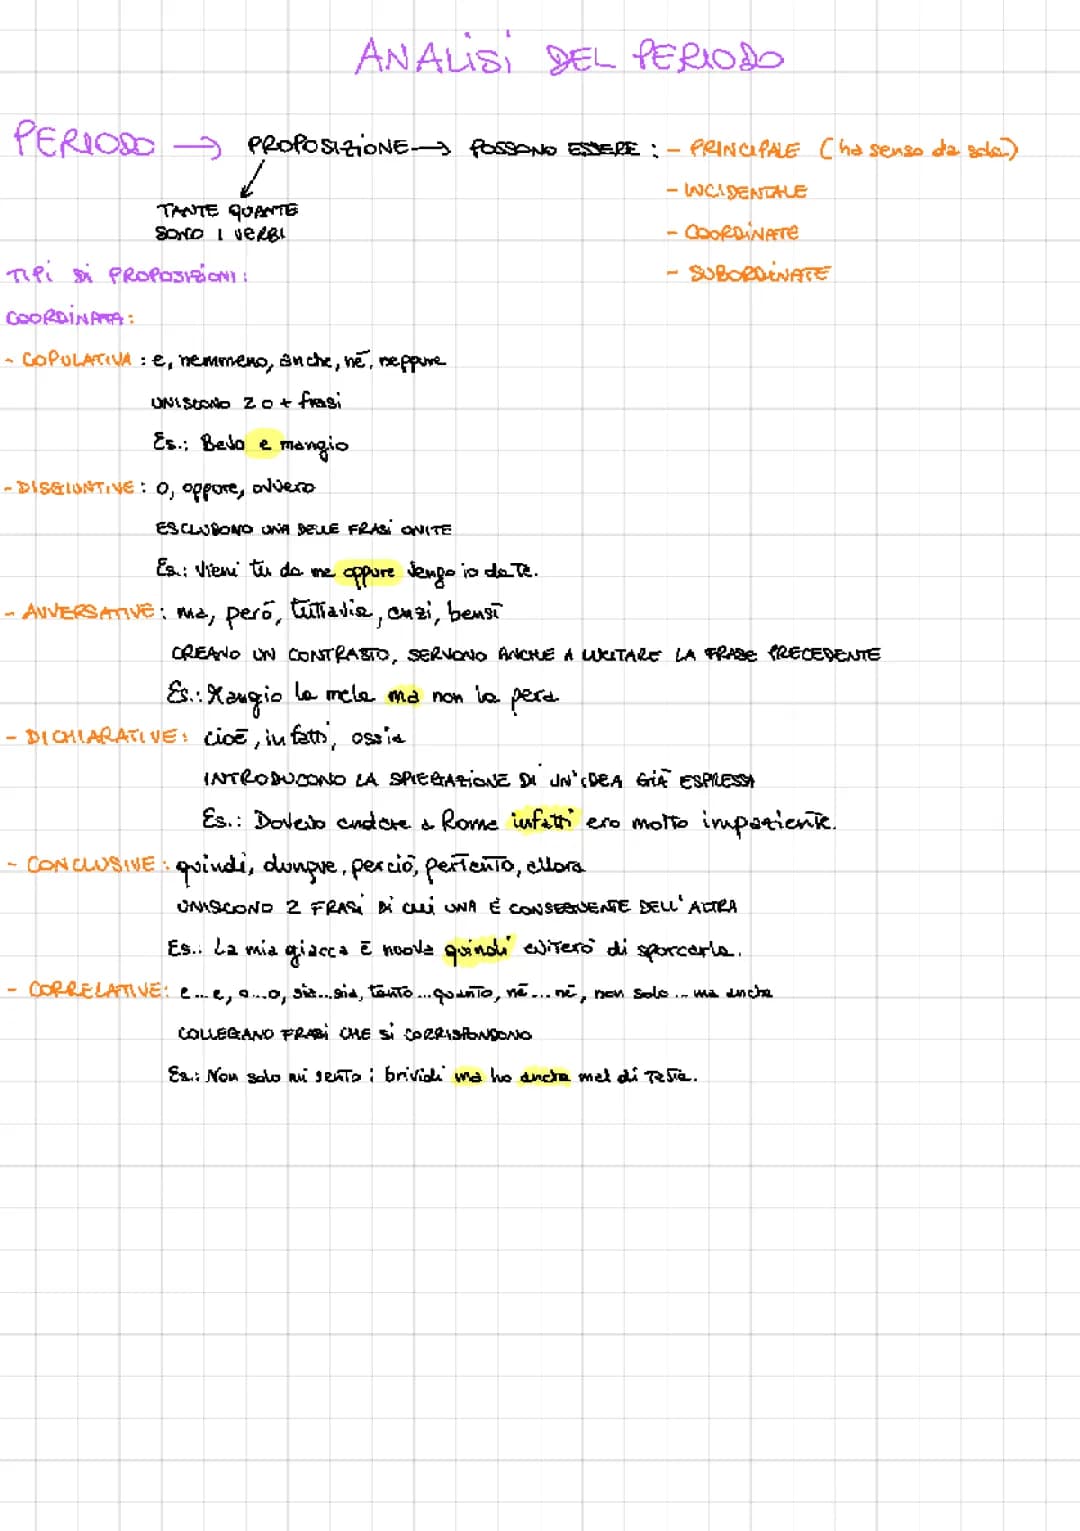 ANALISI DEL PERIODO
PERIODO → PROPOSIZIONE → POSSONO ESSERE : - PRINCIPALE (ha senso da sola)
- INCIDENTALE
TANTE QUANTE
SONO I VERBI
- COORDINATE
TIPI DI PROPOSIZIONI :
- SUBORDINATE
COORDINATA :
- COPULATIVA : e, nemmeno, anche, né, neppure
UNISCONO 2 o + frasi
Es.: Bevo e mangio
- DISGIUNTIVE : o, oppure, ovvero
ESCLUDONO UNA DELLE FRASI UNITE
Es.: Vieni tu da me oppure vengo io da te.
- AVVERSATIVE : ma, però, tuttavia, anzi, bensì
CREANO UN CONTRASTO, SERVONO ANCHE A LIMITARE LA FRASE PRECEDENTE
Es.: Mangio la mela ma non la pera
- DICHIARATIVE : cioè, infatti, ossia
INTRODUCONO LA SPIEGAZIONE DI UN'IDEA GIÀ ESPRESSA
Es.: Dovevo andare a Roma infatti ero molto impaziente.
- CONCLUSIVE : quindi, dunque, perciò, pertanto, allora
UNISCONO 2 FRASI DI CUI UNA È CONSEGUENTE DELL'ALTRA
Es.: La mia giacca è nuova quindi eviterò di sporcarla.
- CORRELATIVE : e...e, o...o, sia...sia, tanto...quanto, né...né, non solo ... ma anche
COLLEGANO FRASI CHE SI CORRISPONDONO
Es.: Non solo mi sento i brividi ma ho anche mal di testa.